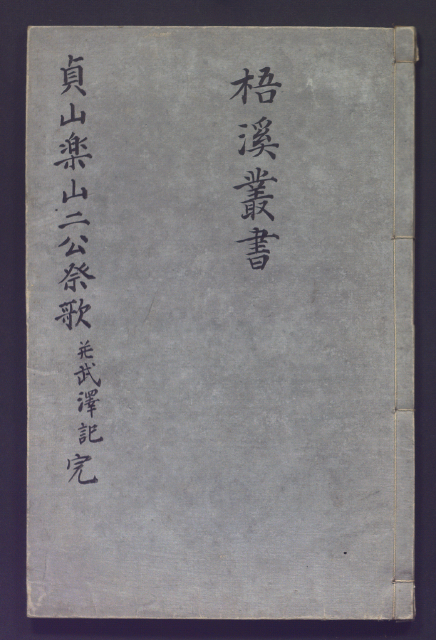 梧溪叢書
貞山楽山二公祭歌 并武澤記 完